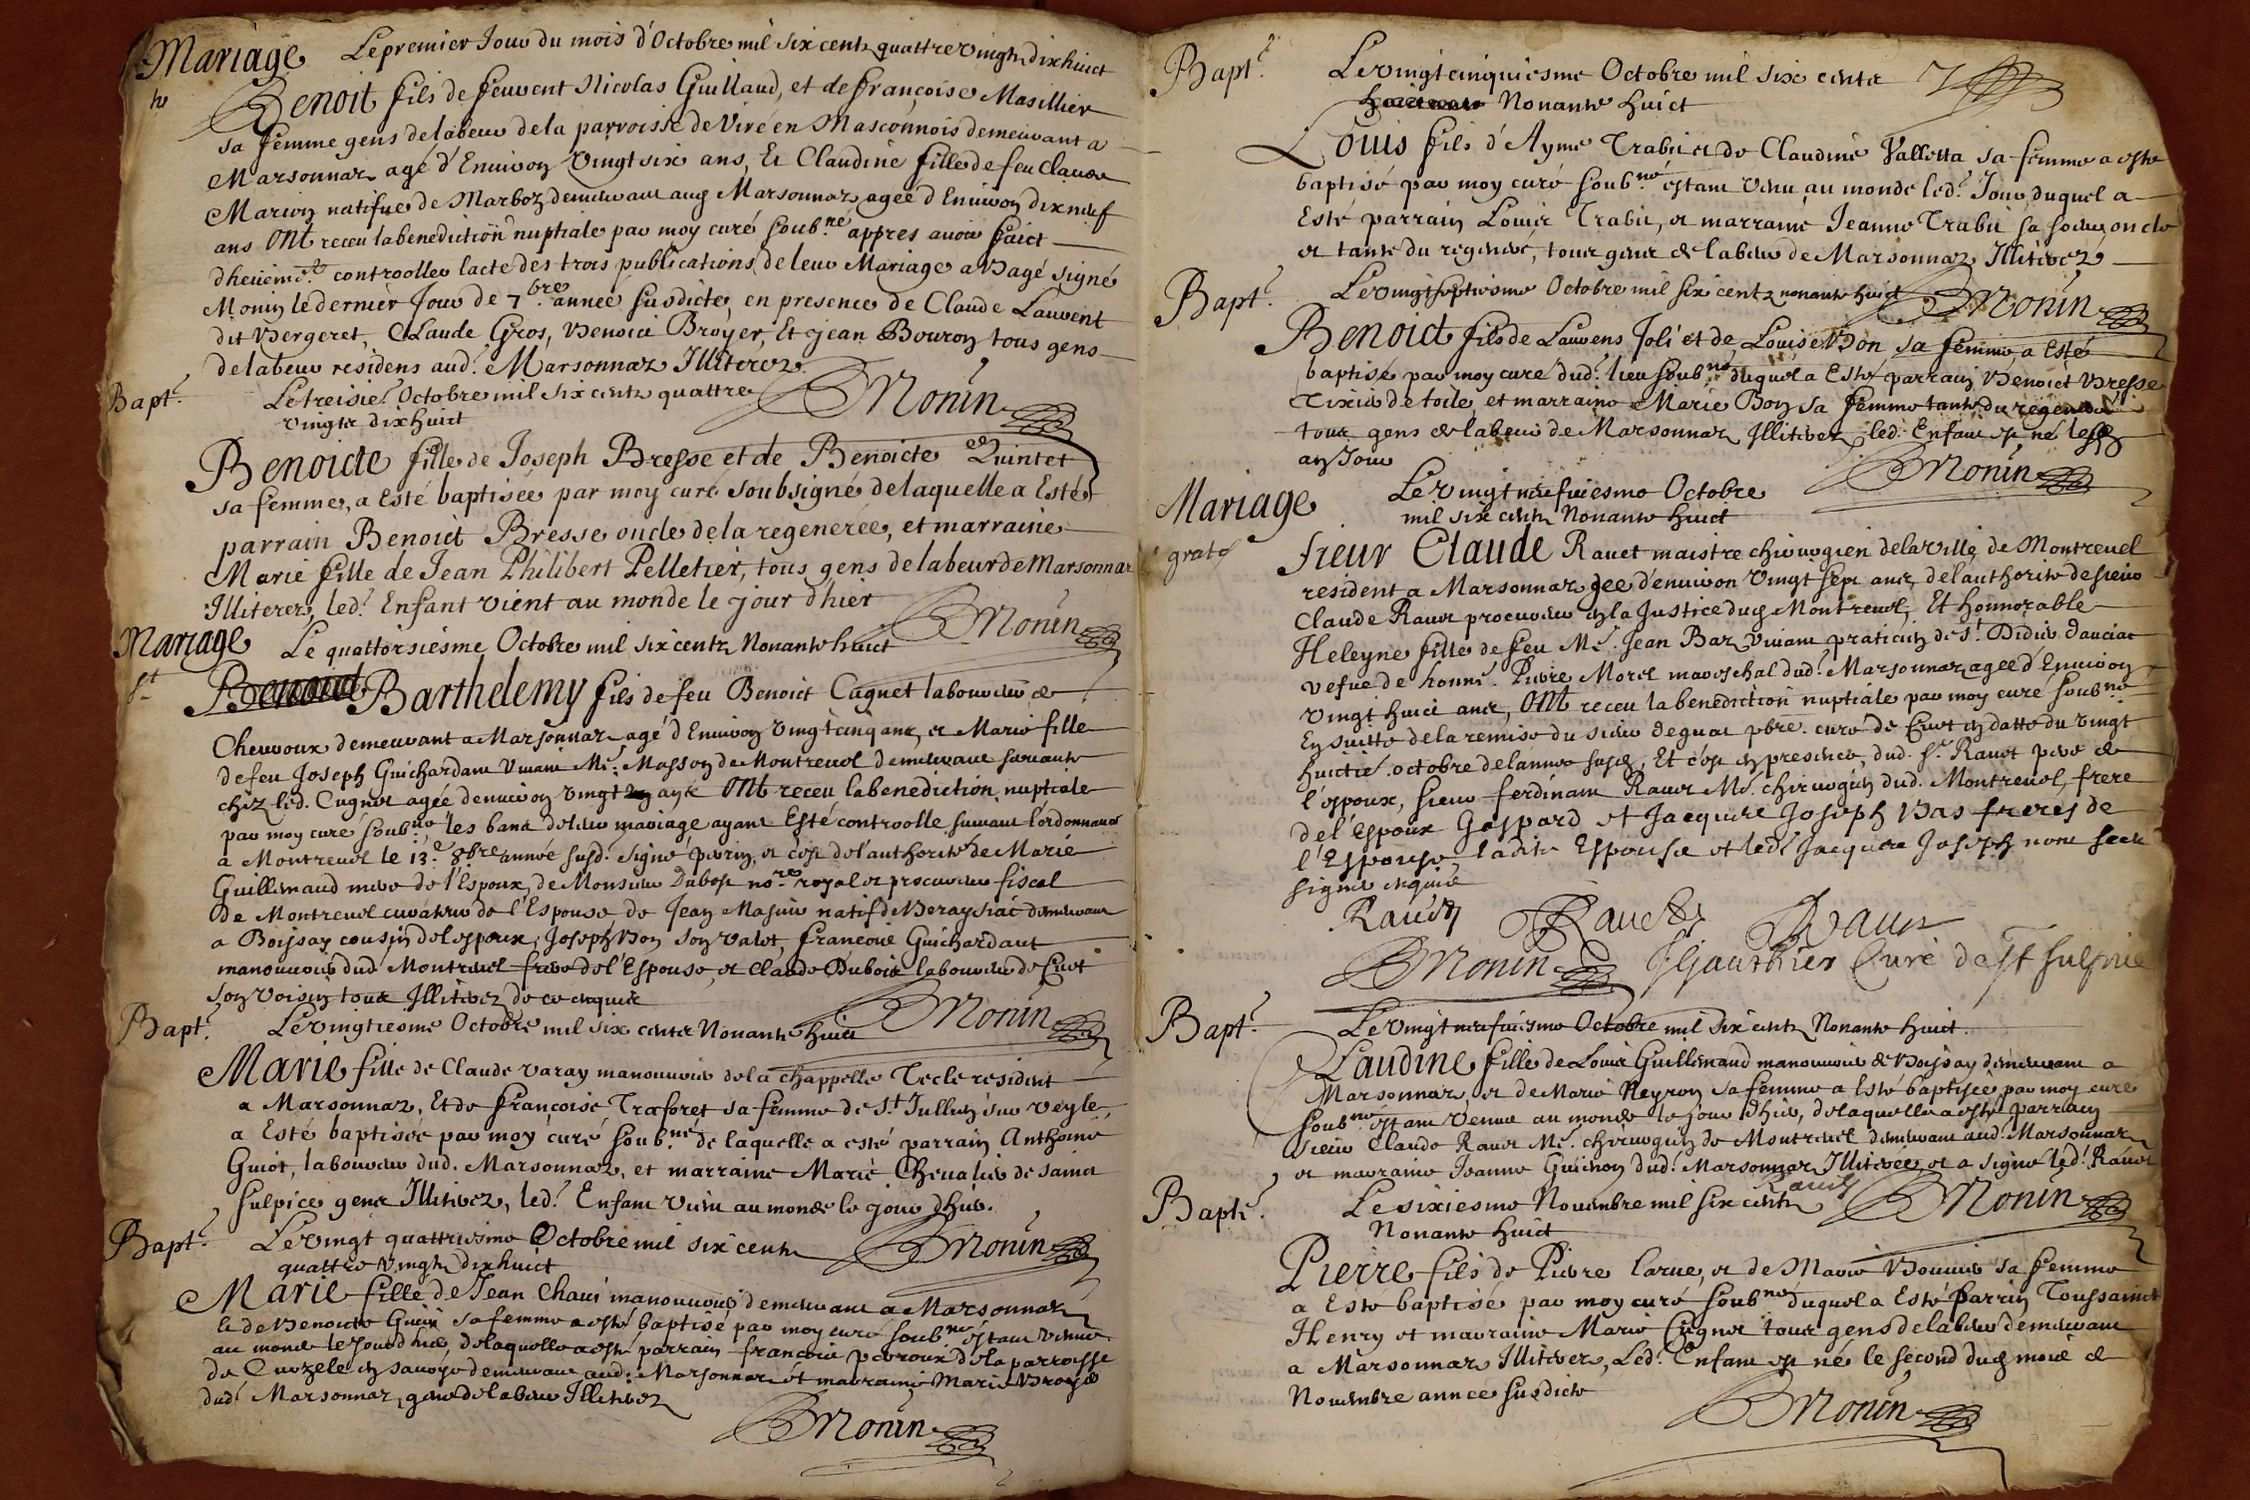 Mariage Le premier Jour du mois d'Octobre mil six cents quattre vingts dix huict
Benoit fils de feu vent Nicolas Guillaud, et de françoise Masillier
sa femme gens de labeur de la parroisse de Viré en Masconnois demeurant a
Marsonnaz agé d'Environ vingt six ans, Et Claudine fille de feu Claude
natifue de Marboz demeurant aud Marsonnaz agée d'Environ dix neuf
ans Ont receu la benediction nuptiale par moy curé soub.né appres avoir faict
controoller lacte des trois publications de leur Mariage a Bagé signé
Monin le dernier Jour de 7.bre année susdicte, en presence de Claude Laurent
dit Bergeret, Claude Gros, Benoict Broyer, Et Jean Bouron tous gens
de labeur residens aud.t Marsonnaz Illiterez
Monin
Bapt.e Le treisie.e Octobre mil six cents quattre
vingts dix huict
Benoicte fille de Joseph Bresse et de Benoicte Quintet
sa femme, a Esté baptisée par moy curé soubsigné de laquelle a Esté
parrain Benoict Bresse oncle de la regenerée, et marraine
Marie fille de Jean Philibert Pelletier, tous gens de labeur de Marsonnaz
Illiterez, led.t Enfant vient au monde le jour d'hier
Monin
Mariage Le quattorsiesme Octobre mil six cents Nonante huict
Barthelemy fils de feu Benoict Cagnet laboureur de
Chevroux demeurant a Marsonnaz agé d'Environ vingt cinq ans, et Marie fille
de feu Joseph Guichardant vivant M.e Masson de Montrevel demeurant servante
chez led. Cugnet agée d'environ vingt ans Ont receu la benediction nuptiale
par moy curé soub.né les bans de leur mariage ayant Esté controollé suivant l'ordonnance
a Montrevel le 13.e 8bre année susd. signé perrin, et c'est de l'authorité de Marie
Guillemaud mere de l'Espoux, de Monsieur Dubost no.re royal et procureur fiscal
de Montrevel curateur de l'Espouse, de Jean natif de demeurant
a Boissay cousin de l'espoux, Joseph Bon son valet, francois Guichardant
manouvrier dud Montrevel frere de l'Espouse, et Claude Dubois laboureur de Cuet
son voisin tous Illiterez de ce enquis
Monin
Bapt.e Le vingtiesme Octobre mil six cents Nonante huict
Marie fille de Claude varay manouvrier de la chappelle Tecle resident
a Marsonnaz, Et de françoise Traforet sa femme de S.t Jullien sur veyle,
a Esté baptisée par moy curé soub.né de laquelle a esté parrain Anthoine
Guiot, laboureur dud. Marsonnaz, et marraine Marie Chevalier de Saint
Sulpice gens Illiterez, led.t Enfant venu au monde le jour d'hier.
Monin
Bapt.e Le vingt quattriesme Octobre mil six cents
quattre vingts dix huict
Marie fille de Jean Chavi manouvrier demeurant a Marsonnaz
Et de Benoicte sa femme a esté baptisé par moy curé soub.né estant venue
au monde le jour d'hier, de laquelle a esté parrain francois perroux de la parroisse
de en savoye demeurant aud. Marsonnaz et marraine Marie Broyer
dud.t Marsonnaz, gens de labeur Illiterez
Monin
Bapt.e Le vingt cinquiesme Octobre mil six cents
Nonante huict
Louis fils d'Ayme Trabit et de Claudine Valletta sa femme a esté
baptisé par moy curé soub.né estant venu au monde led.t Jour, duquel a
Esté parrain Louis Trabit, et marraine Jeanne Trabit sa soeur oncle
et tante du regeneré, tous gens de labeur de Marsonnaz Illiterez
Monin
Bapt.e Le vingt septiesme Octobre mil six cents nonante huict
Benoict fils de Laurens Joli et de Louise Bon sa femme a Esté
baptisé par moy curé dud.t lieu soub.né duquel a Esté parrain Benoict Bresse
Tixier de toile, et marraine Marie Bon sa femme tante du regeneré
tous gens de labeur de Marsonnaz Illiterez led. Enfant est né
Jour
Monin
Mariage Le vingt neufviesme Octobre
gratis mil six cents Nonante huict
sieur Claude Ravet maistre chirurgien de la ville de Montrevel
resident a Marsonnaz agé d'environ vingt sept ans, de l'authorité de sieur
Claude Ravet procureur en la Justice dud Montrevel, Et honnorable
Heleyne fille de feu M.e Jean Baz vivant praticien de S.t Didier d'aussiat
vefue de honn.e Pierre Morel mareschal dud.t Marsonnaz agée d'Environ
vingt huict ans, Ont receu la benediction nuptiale par moy curé soub.né
En suitte de la remise du sieur pbre. curé de Cuet en datte du vingt
huictie. octobre de lannee susd. Et c'est en presence, dud. S.r Ravet pere de
l'espoux, sieur ferdinant Ravet M.e chirurgien dud. Montrevel, frere
de l'Espoux Gaspard et Jacques Joseph Bas freres de
l'Espouse ladite Espouse et led.t Jacques Joseph nont sceu
signer enquis
Ravet Ravet Ravet
Monin JGauthier Curé de St Sulpice
Bapt.e Le vingt neufviesme Octobre mil six cents Nonante huict.
Claudine fille de Louis Guillemaud manouvrier de Boissay demeurant a
Marsonnaz, et de Marie Neyron sa femme a Esté baptisée par moy curé
soub.né estant venue au monde le jour d'hier, de laquelle a esté parrain
sieur Claude Ravet M.e chirurgien de Montrevel demeurant aud. Marsonnaz
et marraine Jeanne Guichon dud.t Marsonnaz Illiterée, et a signé led.t Ravet
Ravet Monin
Bapt.e Le sixiesme Novembre mil six cents
Nonante huict
Pierre fils de Pierre Carue, et de Marie sa femme
a Esté baptisé par moy curé soub.né duquel a Esté Parrin Toussainct
Henry et marraine Marie Cugnet tous gens de labeur demeurant
a Marsonnaz Illiterez, Led.t Enfant est né le second dud mois de
Novembre annee susdicte
Monin